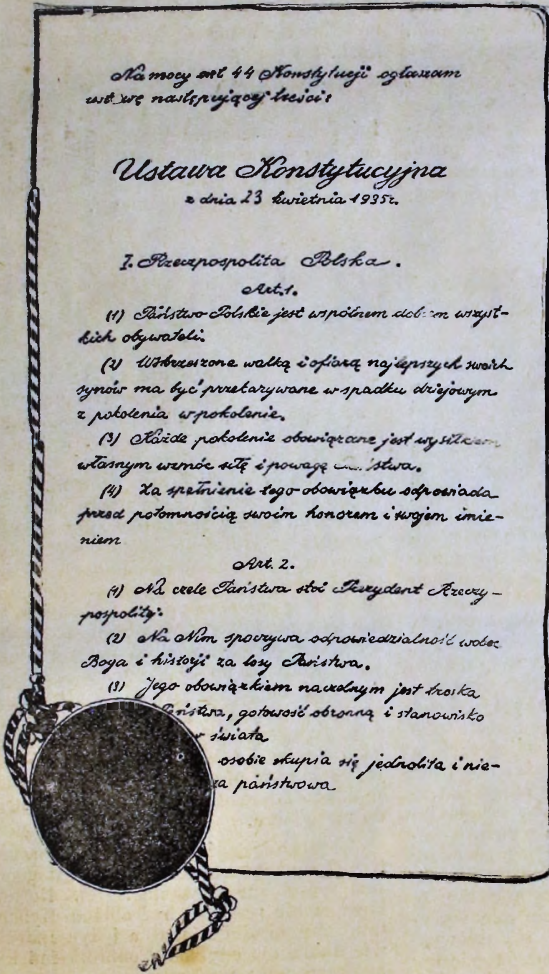 Na mocy art 44 Konstytucji ogłaszam
ust wę następującej treści:
Ustawa Konstytucyjna
z dnia 23 kwietnia 1935r.
I. Rzeczpospolita Polska.
Art.1.
(1) Państwo Polskie jest wspólnem dob m wszyst-
kich obywateli.
(2) Wskrzeszone walką i ofiarą najlepszych swoich
synów ma być przekazywane w spadku dziejowym
z pokolenia w pokolenie.
(3) Każde pokolenie obowiązane jest wysiłkiem
własnym wzmóc siłę i powagę stwa.
(4) Za spełnienie tego obowiązku odpowiada
przed potomnością swoim honorem i swojem imie-
niem
Art. 2.
(1) Na czele Państwa stoi Prezydent Rzeczy-
pospolitej.
(2) Na Nim spoczywa odpowiedzialność wobec
Boga i historji za losy Państwa.
(3) Jego obowiązkiem naczelnym jest troska
Państwa, gotowość obronną i stanowisko
świata
osobie skupia się jednolita i nie-
za państwowa